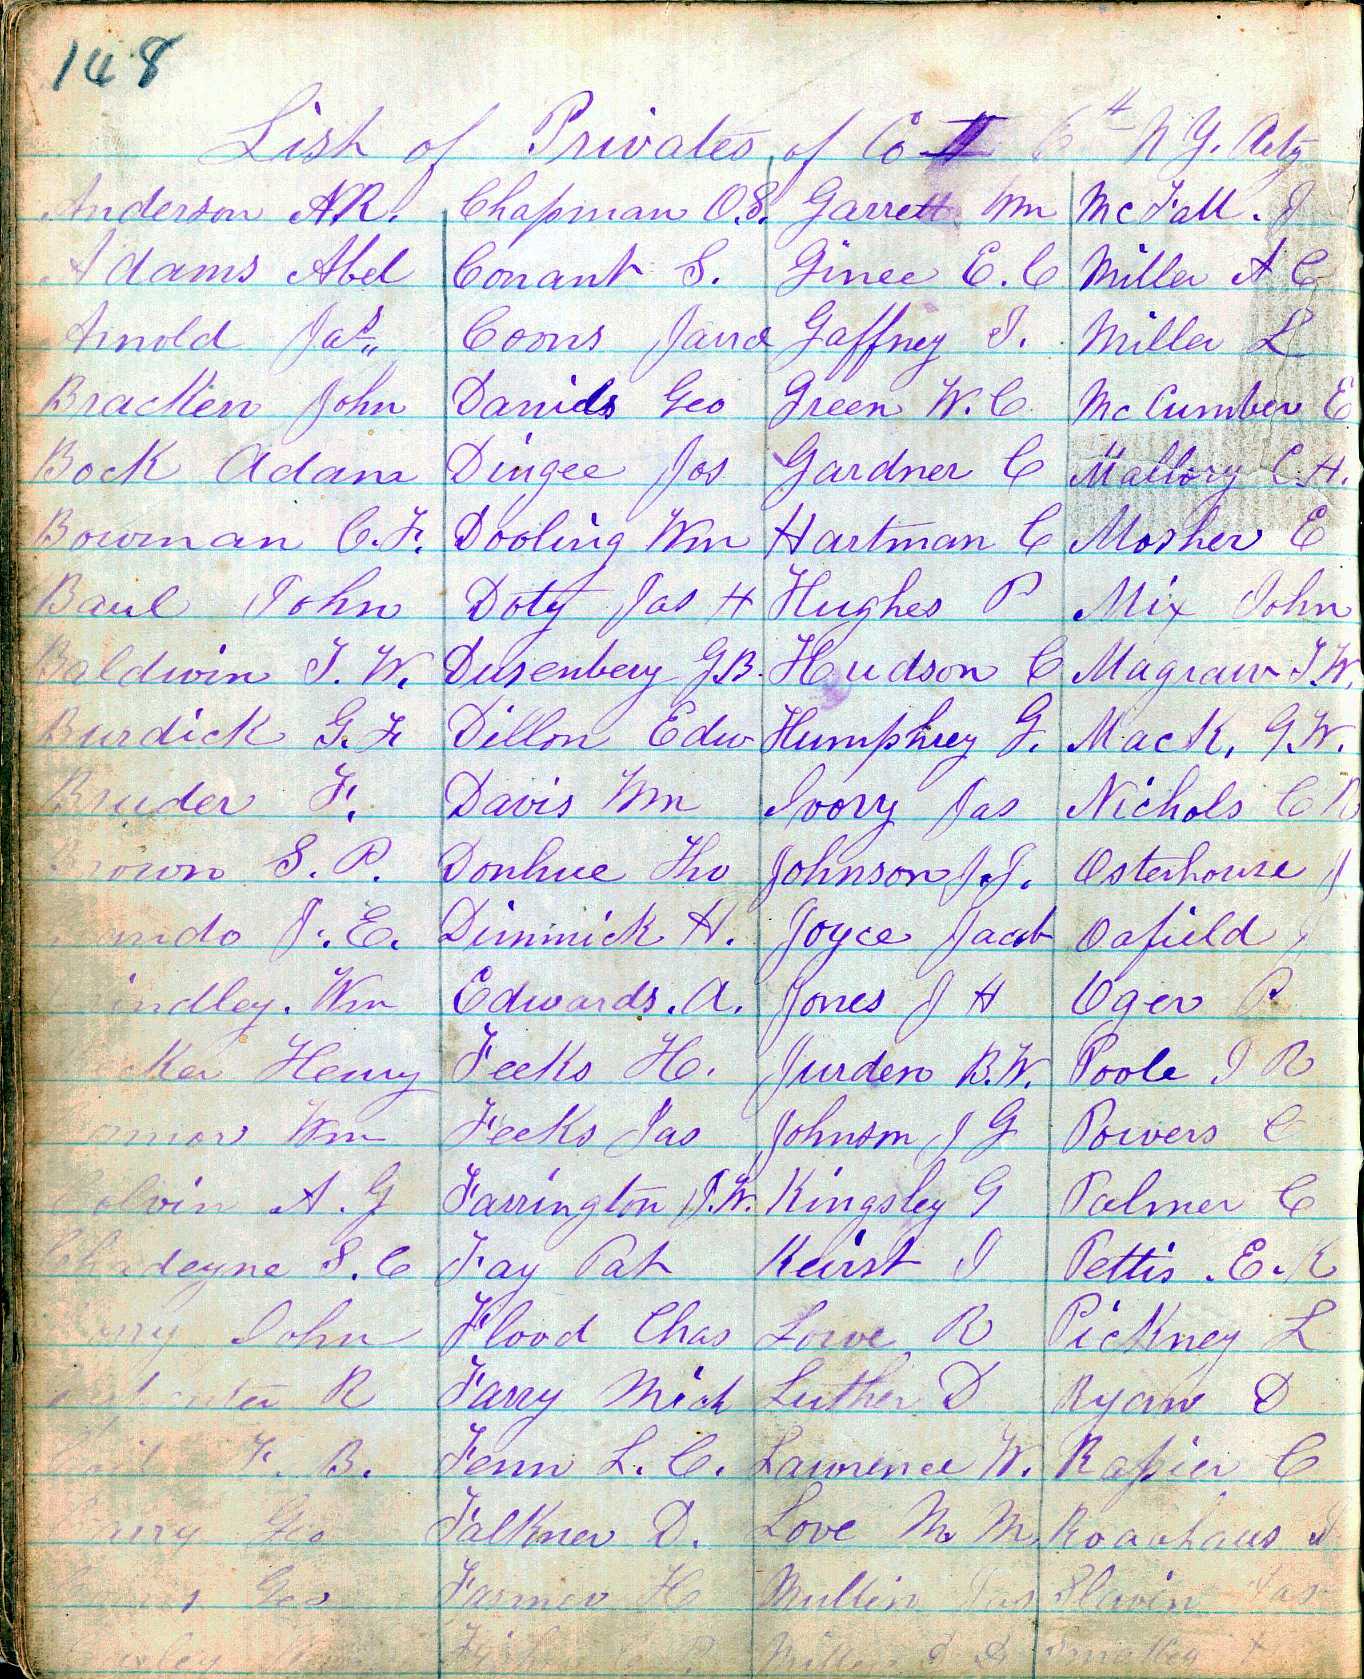 148
List of Privates of Co 6th N Y. Arty
Anderson A.R. Chapman O.S. Garrett Wm McFall. J
Adams Abel Conant S. Ginee E. C Miller A C
Arnold Jas. Coons Jared Gaffney T. Miller L
Bracken John Daniels Geo Green W. C McCumber E
Bock Adam Dingee Jos Gardner C Mallory C. H.
Bowman C. F. Dooling Wm Hartman C Mosher E
Baul John Doty Jas H Hughes P Mix John
Baldwin T. W. Dusenbery G.B. Hudson C Magraw T.W.
Burdick G. F. Dillon Edw Humphrey G. Mack, G.W.
Bruder F. Davis Wm Ivory Jas Nichols C
Brown S. P. Donhue Tho Johnson J.T. Osterhouse J
J. E. Dimmick H. Joyce Jacob Oafield
Wm Edwards. A. Jones J H Oger P
Henry Feeks H. Jurden B.W. Poole I R
Wm Feeks Jas Johnson J G Powers C
Colvin A. G Farrington J.W. Kingsley G Palmer C
Chadeyne S. C Fay Pat Keirst J Pettis. E. K
John Flood Chas Lowe R Pickney L
R Farry Mich Luther D Ryan D
F. B. Fenn L. C. Lawrence W. Rapier C
Geo Falkner D. Love M. M.
Geo Farmer H Mullin Jas Slavin Jas
Miller